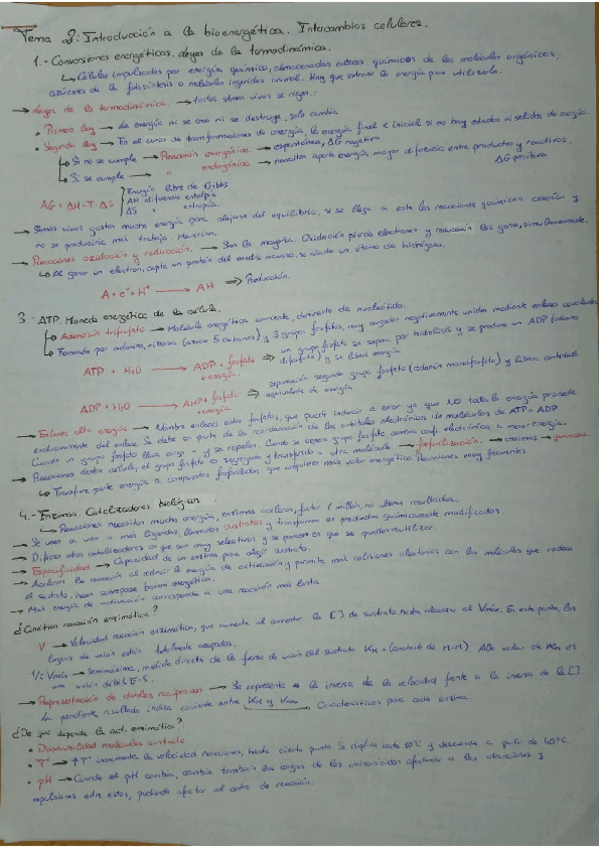 Tema 8: Introducción a la bioenergética. Intercambios celulares.
1.- Conversiones energéticas. Leyes de la termodinámica.
↳ Células impulsadas por energía química, almacenadas enlaces químicos de las moléculas orgánicas,
azúcares de la fotosíntesis o moléculas ingeridas animal. Hay que extraer la energía para utilizarla.
→ Leyes de la termodinámica. → todos seres vivos se rigen:
• Primera ley → La energía ni se crea ni se destruye, solo cambia
• Segunda ley → En el curso de transformaciones de energía, la energía final e inicial si no hay entradas ni salidas de energía
↳ Si no se cumple → Reacción exergónica → espontánea, ΔG negativa
↳ Si se cumple → " endergónica → necesitan aporte energía mayor diferencia entre productos y reactivos.
ΔG positiva
ΔG = ΔH - T· ΔS { Energía libre de Gibbs
ΔH diferencia entalpía
ΔS " entropía
→ Seres vivos gastan mucha energía para alejarse del equilibrio, si se llega a este las reacciones químicas cesarían y
no se produciría más trabajo. Morirían.
→ Reacciones oxidación y reducción. → Son la mayoría. Oxidación pierde electrones y reducción los gana, simultáneamente.
↳ Al ganar un electrón, capta un protón del medio acuoso, se añade un átomo de hidrógeno.
A + e⁻ + H⁺ → AH ⇒ Reducción.
3.- ATP. Moneda energética de la célula.
↳ Adenosín trifosfato → Molécula energética corriente, derivada de nucleótido.
↳ Formado por adenina, ribosa (azúcar 5 carbonos) y 3 grupos fosfatos, muy cargados negativamente unidos mediante enlaces covalentes
ATP + H₂O → ADP + fosfato + energía ⇒ un grupo fosfato se separa por hidrólisis y se produce un ADP (adenosín
difosfato) y se libera energía.
ADP + H₂O → AMP + fosfato + energía ⇒ separación segundo grupo fosfato (adenín monofosfato) y libera cantidad
equivalente de energía
→ Enlaces alta energía → Nombre enlaces entre fosfatos, que puede inducir a error ya que NO toda la energía procede
exclusivamente del enlace. Se debe en parte de la de los orbitales electrónicos. La moléculas de ATP → ADP
Cuando un grupo fosfato lleva carga - y se repelen. Cuando se separa grupo fosfato cambia confi. electrónica a menor energía.
→ Reacciones dentro célula, el grupo fosfato es segregado y transferido a otra molécula → fosforilización. → enzimas → quinasa.
↳ Transfiere parte energía a compuestos fosforilados, que adquieren más valor energético. Reacciones muy frecuentes
4.- Enzimas. Catalizadores biológicos
↳ Reacciones necesitan mucha energía, enzimas aceleran, factor 1 millón, no alteran resultados.
→ Se unen a uno o más ligandos, llamados sustratos y transforman en productos químicamente modificados.
→ Diferencia otros catalizadores es que son muy selectivas y se parecen en que se pueden reutilizar.
→ Especificidad → Capacidad de un enzima para elegir sustrato.
→ Aceleran la reacción al reducir la energía de activación y permite más colisiones aleatorias con las moléculas que rodea
el sustrato, hacen sobrepase barrera energética.
→ Más energía de activación corresponde a una reacción más lenta
¿Cinética reacción enzimática?
V → Velocidad reacción enzimática, que aumenta al aumentar la [ ] de sustrato hasta alcanzar el Vmáx. En este punto, los
lugares de unión están totalmente ocupados.
1/2 Vmáx → Semimáxima, medida directa de la fuerza de unión del sustrato KM = (constante de M-M). Alto valor de KM es
una unión débil E-S.
→ Representación de dobles recíprocos → Se representa la inversa de la velocidad frente a la inversa de la [ ].
La pendiente resultado indica cociente entre KM y Vmáx. Característicos para cada enzima.
¿De que depende la act. enzimática?
• Disponibilidad moléculas sustrato
• Tª → ↑Tª incrementa la velocidad reacciones, hasta cierto punto. Se duplica cada 10ºC y desciende a partir de 40ºC.
• pH → Cuando el pH cambia, cambia también las cargas de los aminoácidos afectando a las atracciones y
repulsiones entre estos, pudiendo afectar al centro de reacción.